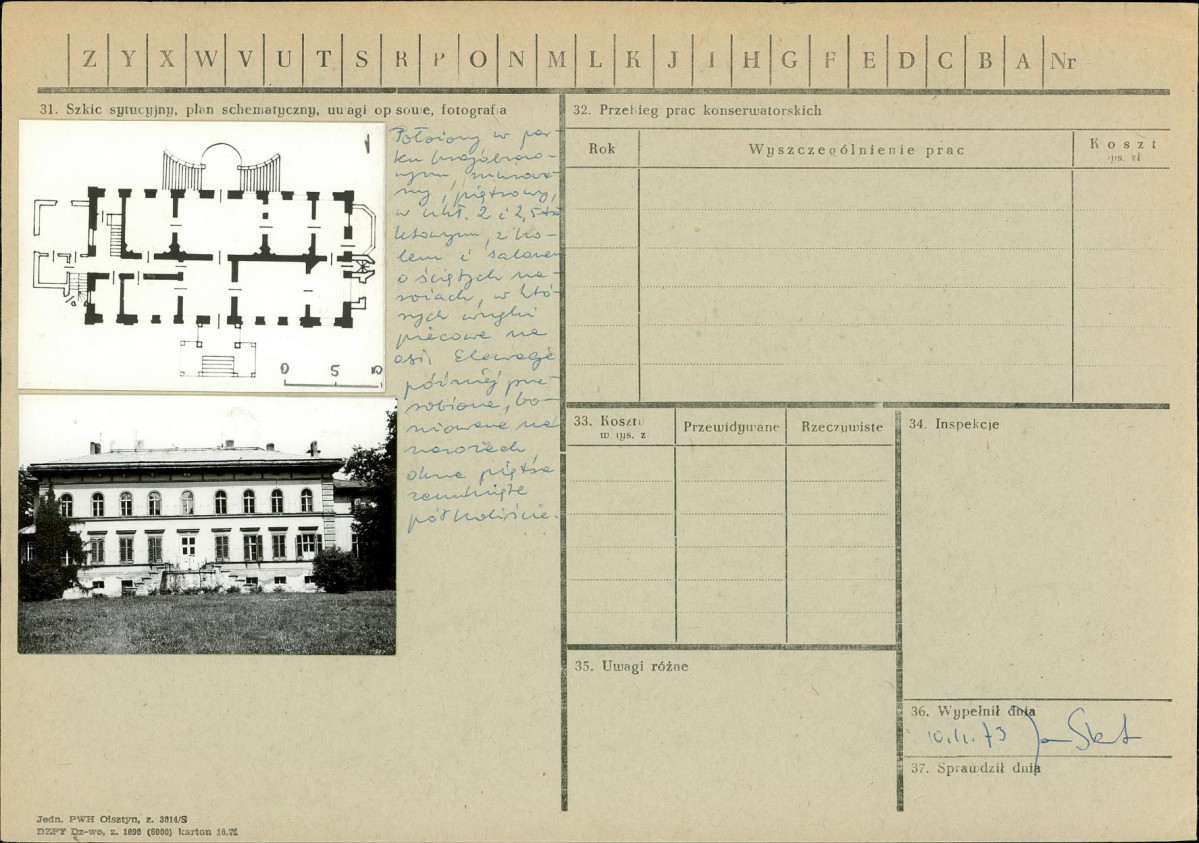 Z Y X W V U T S R P O N M L K J I H G F E D C B A Nr
31. Szkic sytucyjny, plan schematyczny, uwagi opisowe, fotografia
0 5 10
Położony w par-
ku krajobrazo-
wym, murowa-
ny, piętrowy,
w ukł. 2 i 2,5 tra
ktowym, z ho-
lem i salonem
o ściętych na-
rożach, w któ-
rych wnęki
piecowe na
osi. Elewacje
później prze-
robione, bo-
niowane na
narożach
okna piętra
zamknięte
półkoliście.
32. Przebieg prac konserwatorskich
Rok
Wyszczególnienie prac
Koszt
tys. zł
33. Koszty
w tys. z
Przewidywane
Rzeczywiste
34. Inspekcje
35. Uwagi różne
36. Wypełnił dnia
37. Sprawdził dnia
Jedn. PWH Olsztyn, z. 3014/S
DZPY Dz-wo, z. 1890 (5000) karton 10.71